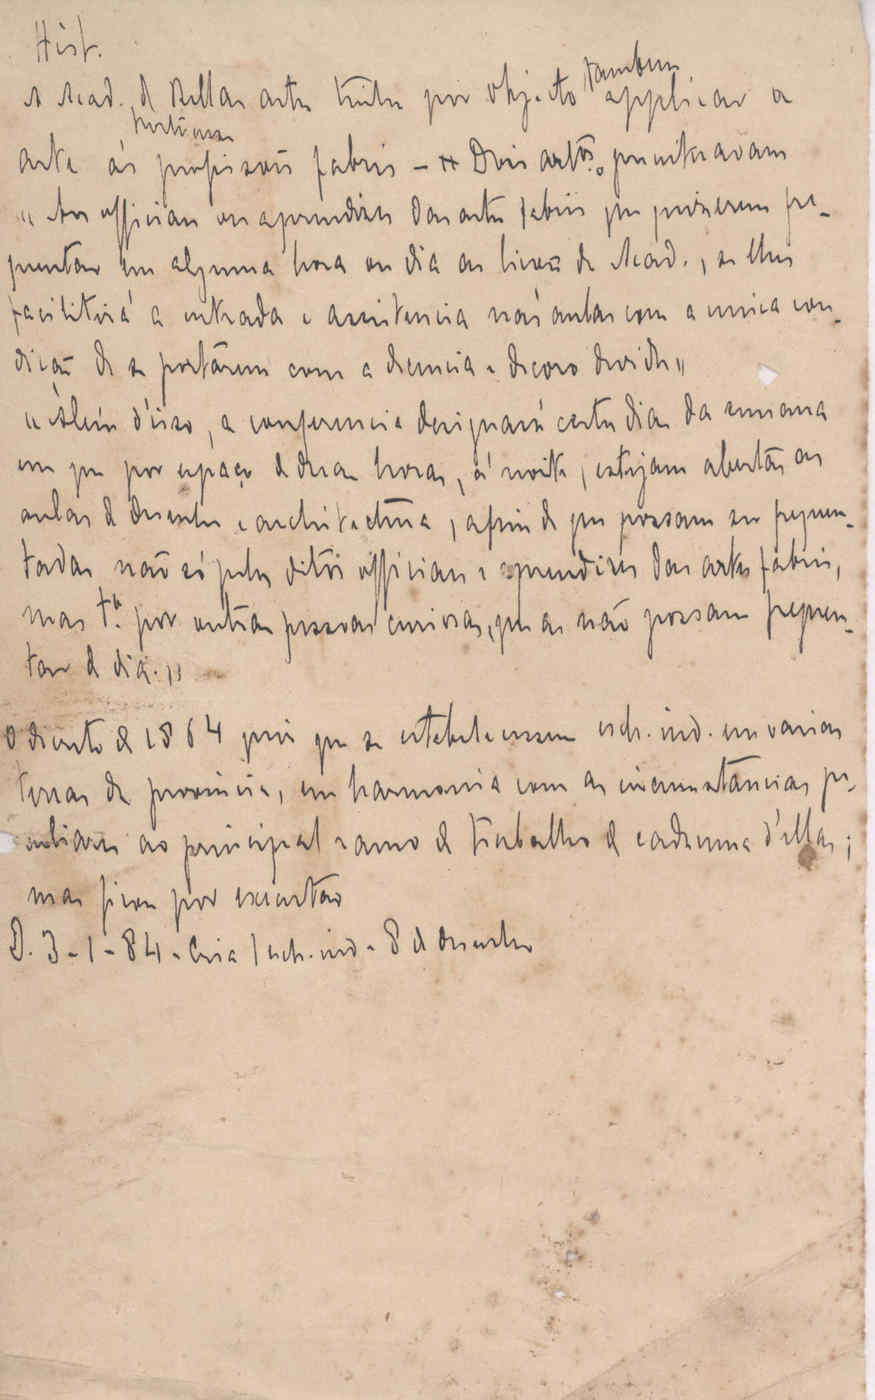 Hist.
A Acad. de Bellas artes tinha por objecto tambem applicar a
arte ás profissões fabris - Dois artos. preceituavam
"Aos officiaes ou aprendizes das artes fabris que quizerem fre-
quentar em alguma hora ou dia as lições da Acad., se lhes
facilitará a entrada e assistencia nas aulas com a unica con-
dição de se portarem com a decencia e decoro devido"
"Além d'isso, a conferencia designará certos dias da semana
em que por espaço de duas horas, á noite, estejam abertas as
aulas de desenho e architectura, afim de que possam ser frequen-
tadas não só pelos ditos officiaes e aprendizes das artes fabris,
mas tb. por outras pessoas curiosas, que as não possam frequen-
tar de dia."
O decreto de 1864 quis que se estabelecessem esch. ind. em varias
terras da provincia, em harmonia com as circumstancias pe-
culiares ao principal ramo de trabalho de cada uma d'ellas;
mas ficou por executar
D. 3-1-84 - Cria 1 esch. ind. e 8 de desenho